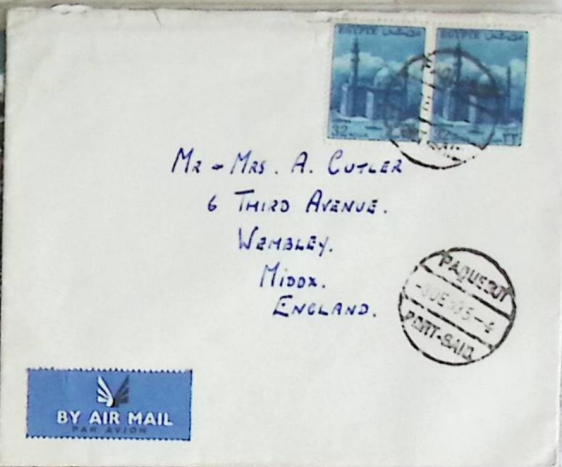 EGYPTE
EGYPTE
32
32
MR & MRS. A. CUTLER
6 THIRD AVENUE.
WEMBLEY.
MIDDX.
ENGLAND.
PAQUEBOT
PORT-SAID
BY AIR MAIL
PAR AVION